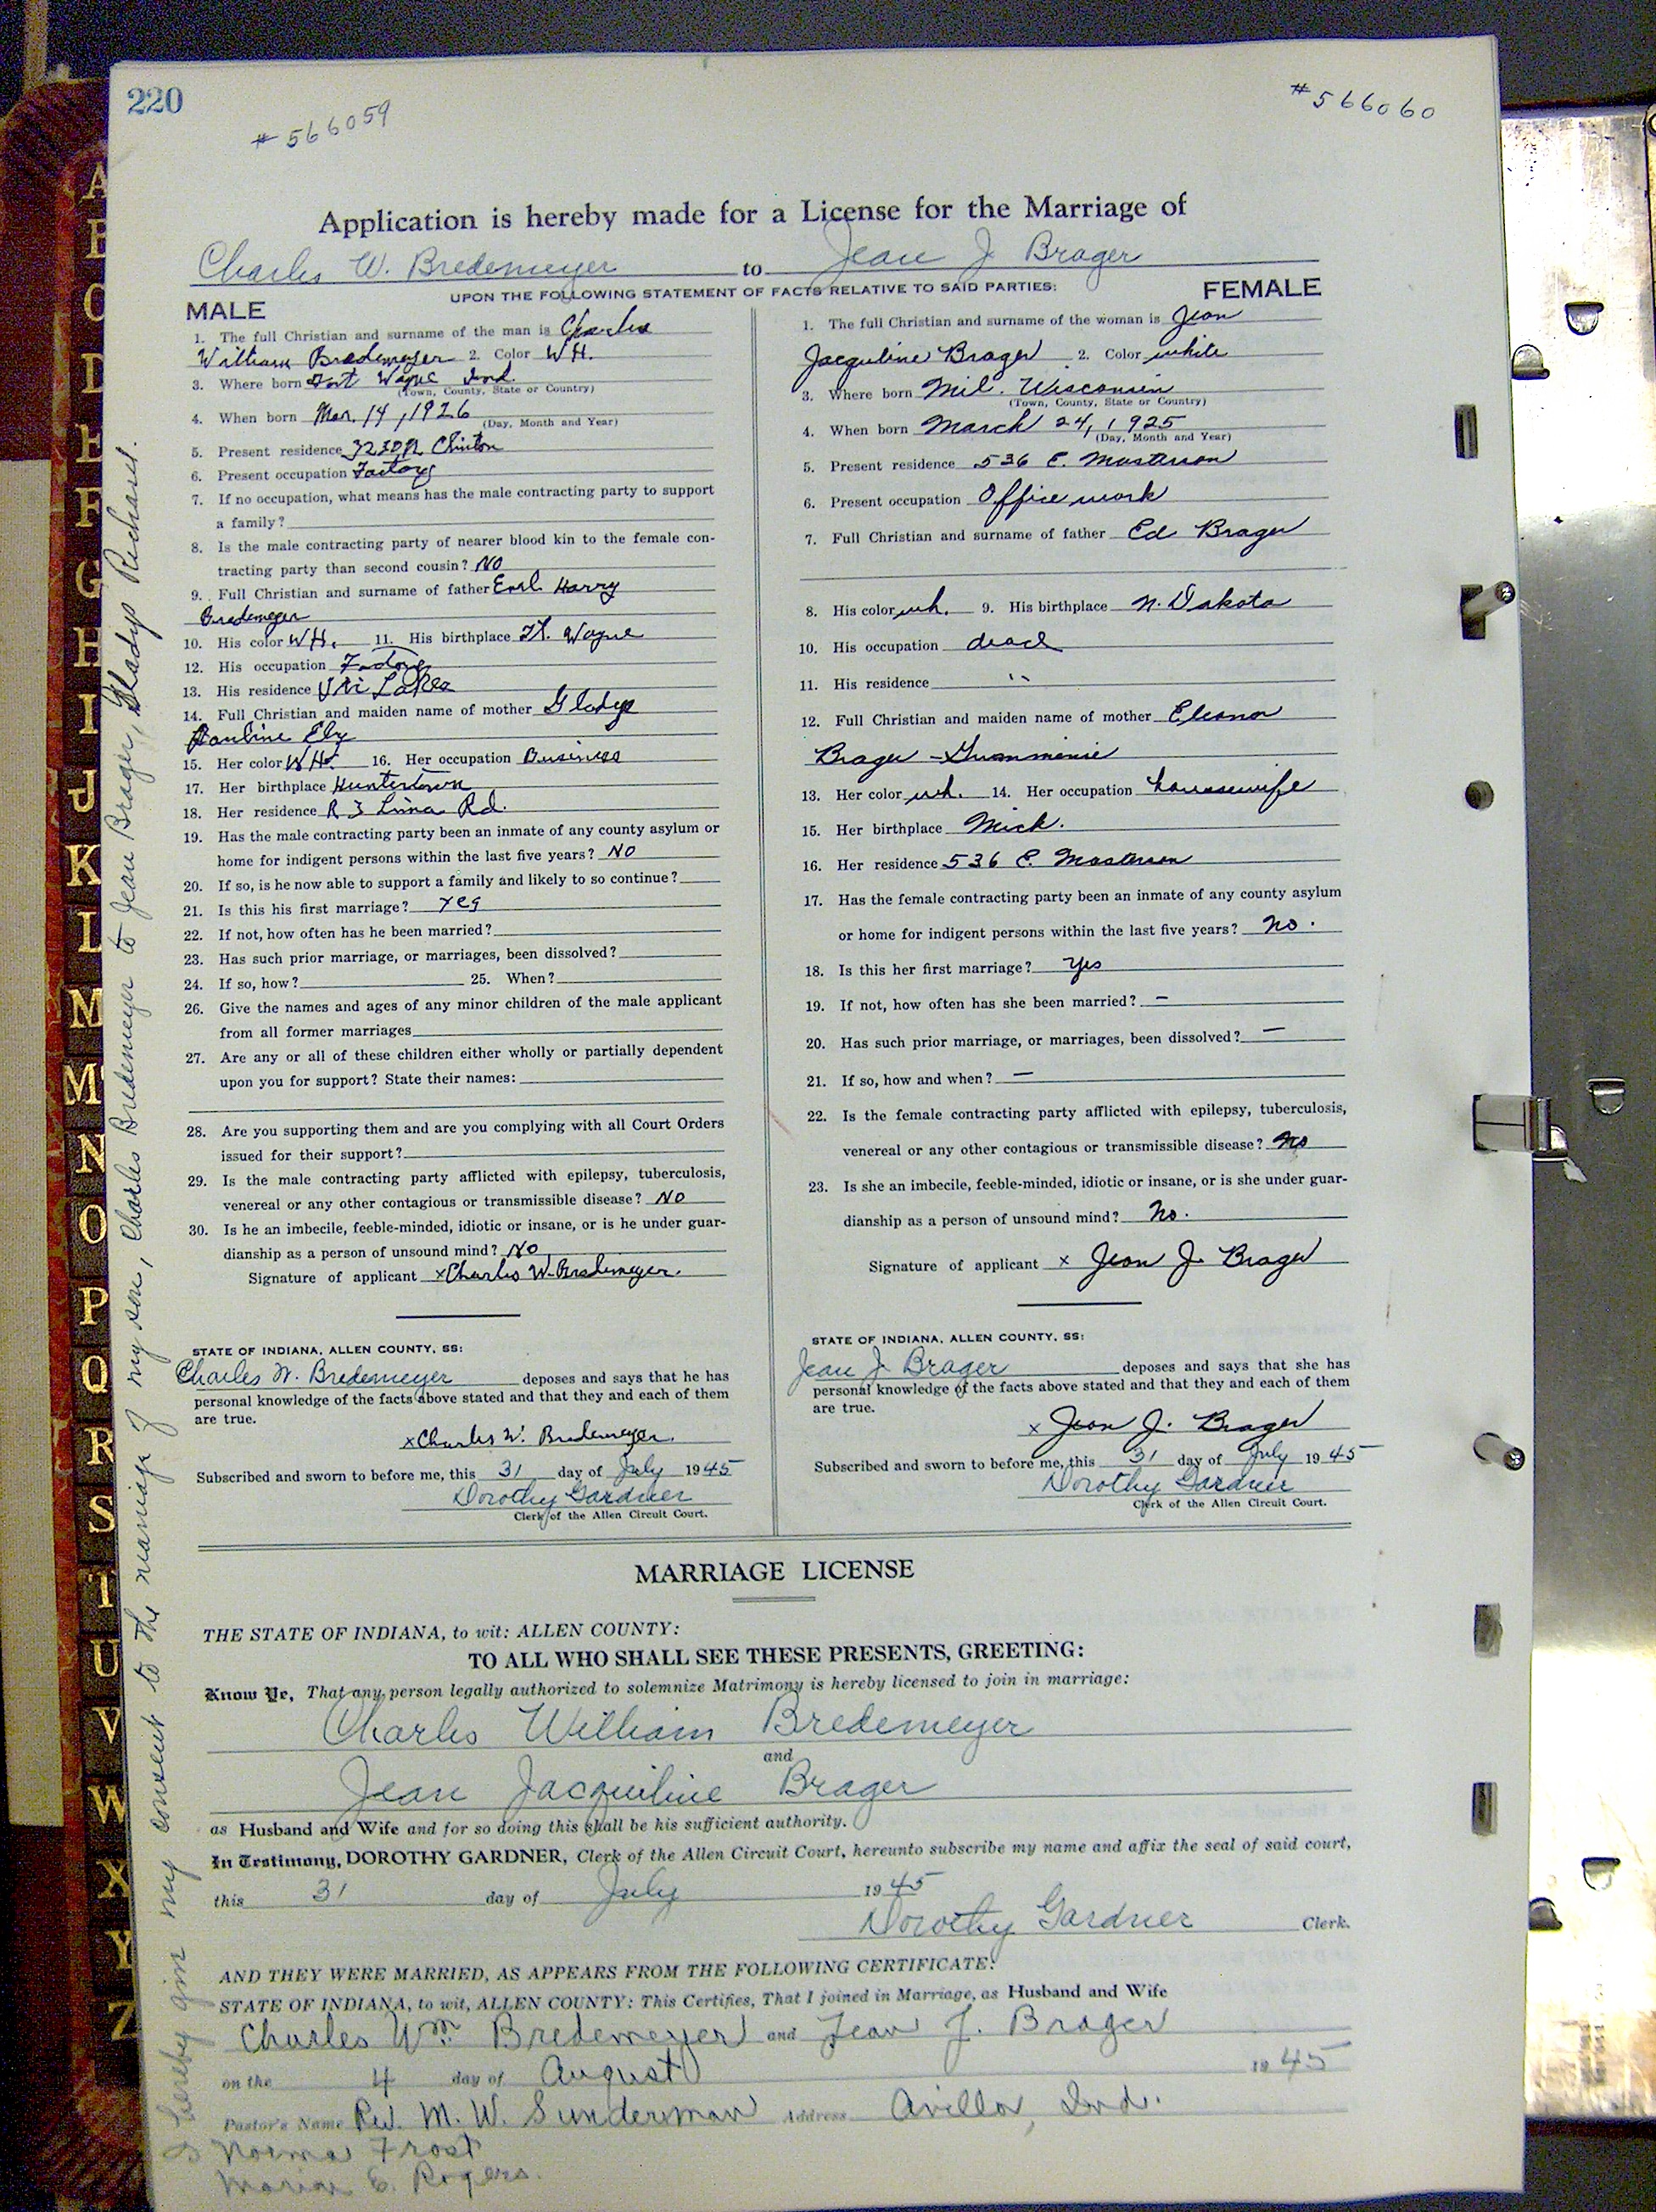 220
# 566059
# 566060
Application is hereby made for a License for the Marriage of
Charles W. Bredemeyer to Jean J Brager
UPON THE FOLLOWING STATEMENT OF FACTS RELATIVE TO SAID PARTIES:
MALE
1. The full Christian and surname of the man is Charles
William Bredemeyer 2. Color WH.
3. Where born Fort Wayne Ind.
(Town, County, State or Country)
4. When born Mar. 14, 1926
(Day, Month and Year)
5. Present residence Clinton
6. Present occupation Factory
7. If no occupation, what means has the male contracting party to support
a family?
8. Is the male contracting party of nearer blood kin to the female con-
tracting party than second cousin? NO
9. Full Christian and surname of father Earl Harry
Bredemeyer
10. His color WH. 11. His birthplace Ft. Wayne
12. His occupation Factory
13. His residence Tri Lakes
14. Full Christian and maiden name of mother Gladys
Pauline Ely
15. Her color WH. 16. Her occupation Business
17. Her birthplace Huntertown
18. Her residence R 3 Lima Rd.
19. Has the male contracting party been an inmate of any county asylum or
home for indigent persons within the last five years? NO
20. If so, is he now able to support a family and likely to so continue?
21. Is this his first marriage? Yes
22. If not, how often has he been married?
23. Has such prior marriage, or marriages, been dissolved?
24. If so, how? 25. When?
26. Give the names and ages of any minor children of the male applicant
from all former marriages
27. Are any or all of these children either wholly or partially dependent
upon you for support? State their names:
28. Are you supporting them and are you complying with all Court Orders
issued for their support?
29. Is the male contracting party afflicted with epilepsy, tuberculosis,
venereal or any other contagious or transmissible disease? NO
30. Is he an imbecile, feeble-minded, idiotic or insane, or is he under guar-
dianship as a person of unsound mind? NO
Signature of applicant x Charles W. Bredemeyer.
STATE OF INDIANA, ALLEN COUNTY, SS:
Charles W. Bredemeyer deposes and says that he has
personal knowledge of the facts above stated and that they and each of them
are true.
x Charles W. Bredemeyer.
Subscribed and sworn to before me, this 31 day of July 1945
Dorothy Gardner
Clerk of the Allen Circuit Court.
FEMALE
1. The full Christian and surname of the woman is Jean
Jacquline Brager 2. Color white
3. Where born Mil. Wisconsin
(Town, County, State or Country)
4. When born March 24, 1925
(Day, Month and Year)
5. Present residence 536 E. Masterson
6. Present occupation Office work
7. Full Christian and surname of father Ed Brager
8. His color wh. 9. His birthplace N. Dakota
10. His occupation dead
11. His residence "
12. Full Christian and maiden name of mother Eleanor
Brager -
13. Her color wh. 14. Her occupation housewife
15. Her birthplace Mich.
16. Her residence 536 E. Masterson
17. Has the female contracting party been an inmate of any county asylum
or home for indigent persons within the last five years? no.
18. Is this her first marriage? Yes
19. If not, how often has she been married? —
20. Has such prior marriage, or marriages, been dissolved? —
21. If so, how and when? —
22. Is the female contracting party afflicted with epilepsy, tuberculosis,
venereal or any other contagious or transmissible disease? no
23. Is she an imbecile, feeble-minded, idiotic or insane, or is she under guar-
dianship as a person of unsound mind? No.
Signature of applicant x Jean J. Brager
STATE OF INDIANA, ALLEN COUNTY, SS:
Jean J. Brager deposes and says that she has
personal knowledge of the facts above stated and that they and each of them
are true.
x Jean J. Brager
Subscribed and sworn to before me, this 31 day of July 1945
Dorothy Gardner
Clerk of the Allen Circuit Court.
MARRIAGE LICENSE
THE STATE OF INDIANA, to wit: ALLEN COUNTY:
TO ALL WHO SHALL SEE THESE PRESENTS, GREETING:
Know Ye, That any person legally authorized to solemnize Matrimony is hereby licensed to join in marriage:
Charles William Bredemeyer
and
Jean Jacquiline Brager
as Husband and Wife and for so doing this shall be his sufficient authority.
In Testimony, DOROTHY GARDNER, Clerk of the Allen Circuit Court, hereunto subscribe my name and affix the seal of said court,
this 31 day of July 1945
Dorothy Gardner Clerk.
AND THEY WERE MARRIED, AS APPEARS FROM THE FOLLOWING CERTIFICATE:
STATE OF INDIANA, to wit, ALLEN COUNTY: This Certifies, That I joined in Marriage, as Husband and Wife
Charles Wm. Bredemeyer and Jean J. Brager
on the 4 day of August 1945
Pastor's Name Rev. M. W. Sunderman Address Avilla, Ind.
Norma Frost
Marian E. Rogers.
I hereby give my consent to the marriage of my son, Charles Bredemeyer to Jean Brager, Gladys Richard.
A
B
C
D
E
F
G
H
I
J
K
L
M
M
N
O
P
Q
R
S
T
U
V
W
X
Y
Z